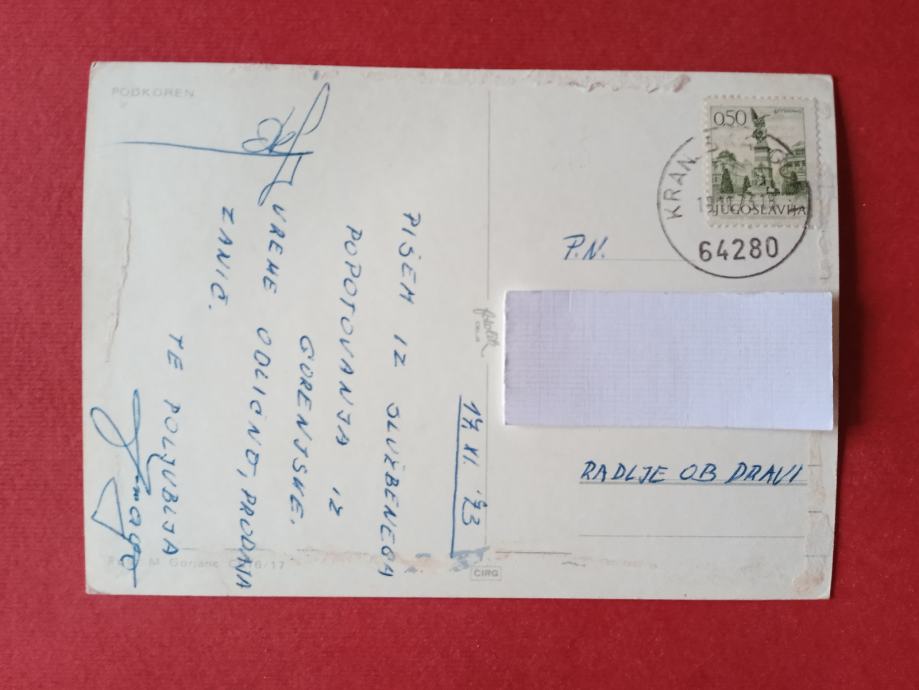 PODKOREN
17. XI. '73
PIŠEM IZ SLUŽBENEGA
POPOTOVANJA IZ
GORENJSKE.
VREME ODLIČNO, PRODAJA
ZANIČ.
TE POLJUBLJA
0,50
JUGOSLAVIJA
KRANJ
64280
P.N.
RADLJE OB DRAVI
M. Gorjanc
CIRG